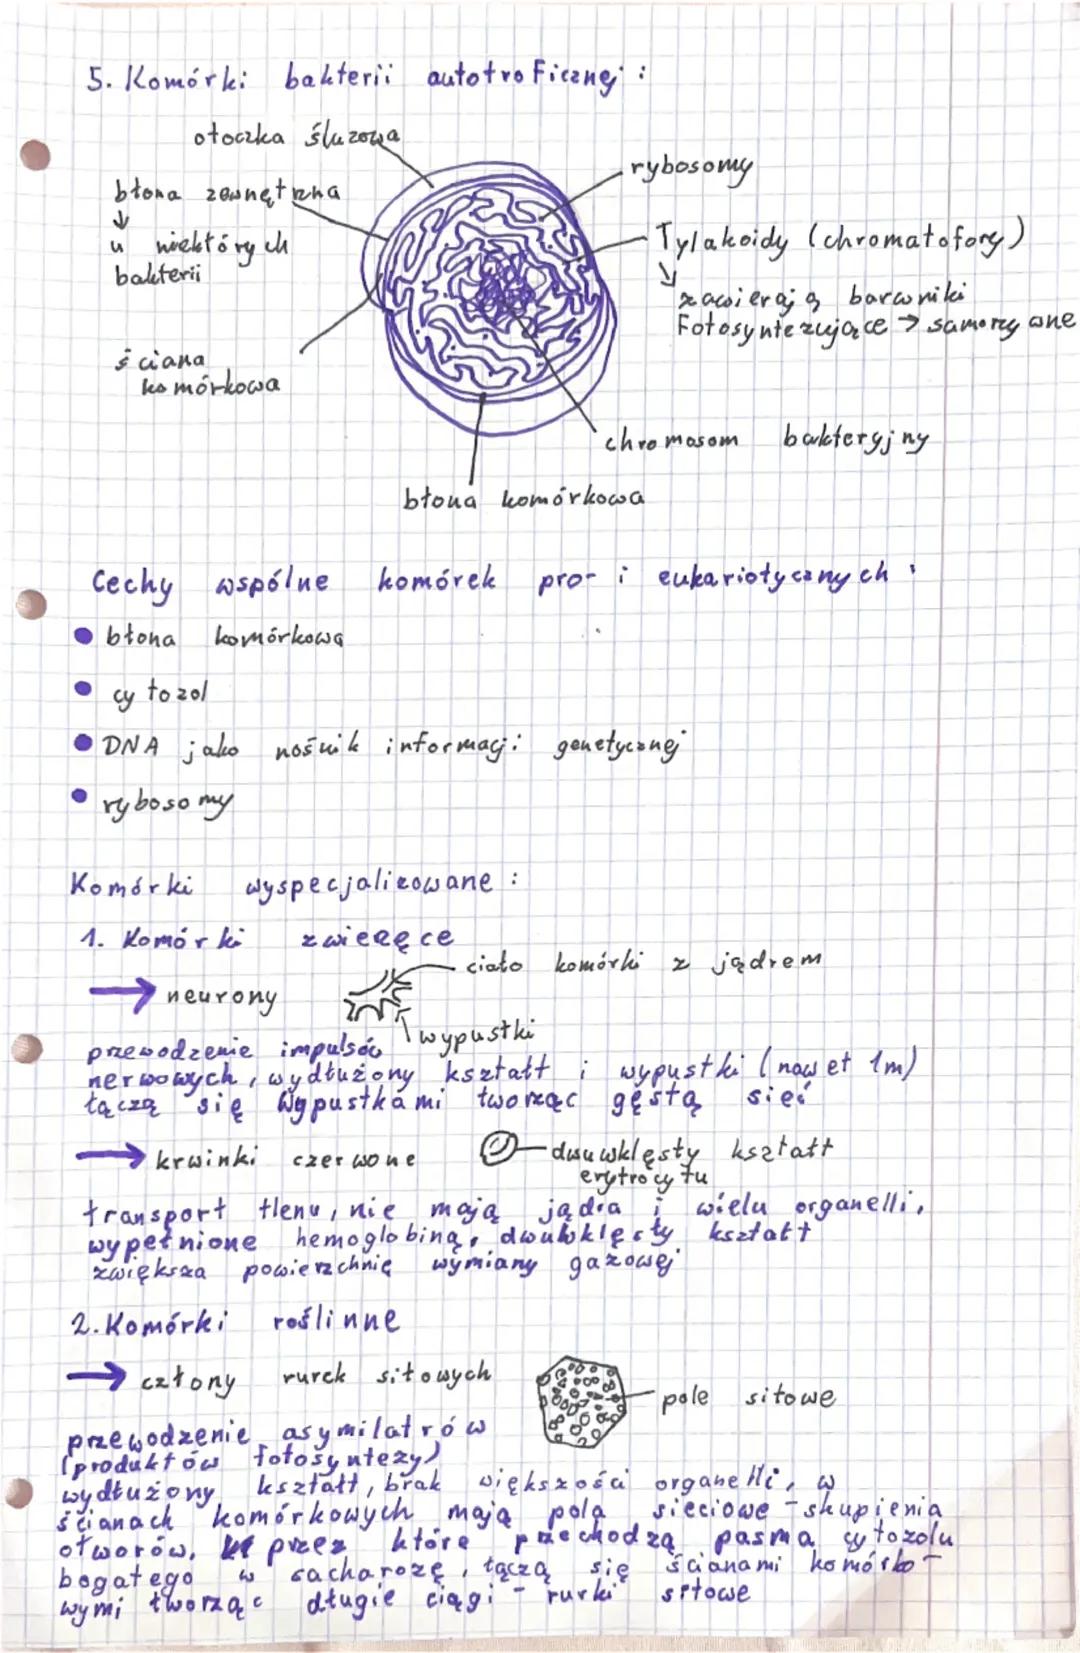 5. Komórki bakterii autotroficznej:
otoczka śluzowa
błona zewnętrzna
↓
u niektórych
bakterii
ściana
komórkowa
rybosomy
Tylakoidy (chromatofory)
↓
zawierają barwniki
Fotosyntezujące → samożywne
chromosom bakteryjny
błona komórkowa
Cechy wspólne komórek pro- i eukariotycznych:
• błona komórkowa
• cytozol
• DNA jako nośnik informacji genetycznej
• rybosomy
Komórki wyspecjalizowane:
1. Komórki zwierzęce
→ neurony
ciało komórki z jądrem
wypustki
przewodzenie impulsów
nerwowych, wydłużony kształt i wypustki (nawet 1m)
łączą się wypustkami tworząc gęstą sieć
→ krwinki czerwone
dwuwklęsty kształt
erytrocytu
transport tlenu, nie mają jądra i wielu organelli,
wypełnione hemoglobiną, dwuwklęsty kształt
zwiększa powierzchnię wymiany gazowej
2. Komórki roślinne
→ człony rurek sitowych
pole sitowe
przewodzenie asymilatrów
(produktów fotosyntezy)
wydłużony kształt, brak większości organelli, w
ścianach komórkowych mają pola sieciowe - skupienia
otworów, przez które przechodzą pasma cytozolu
bogatego w sacharozę, łączą się ścianami komórko-
wymi tworząc długie ciągi - rurki sitowe